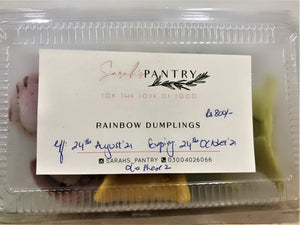 Sarah's PANTRY
FOR THE LOVE OF FOOD
Rs 800/-
RAINBOW DUMPLINGS
Mf: 24th August '21 Expiry 24th October '21
SARAHS_PANTRY 03004026066
Phase 2